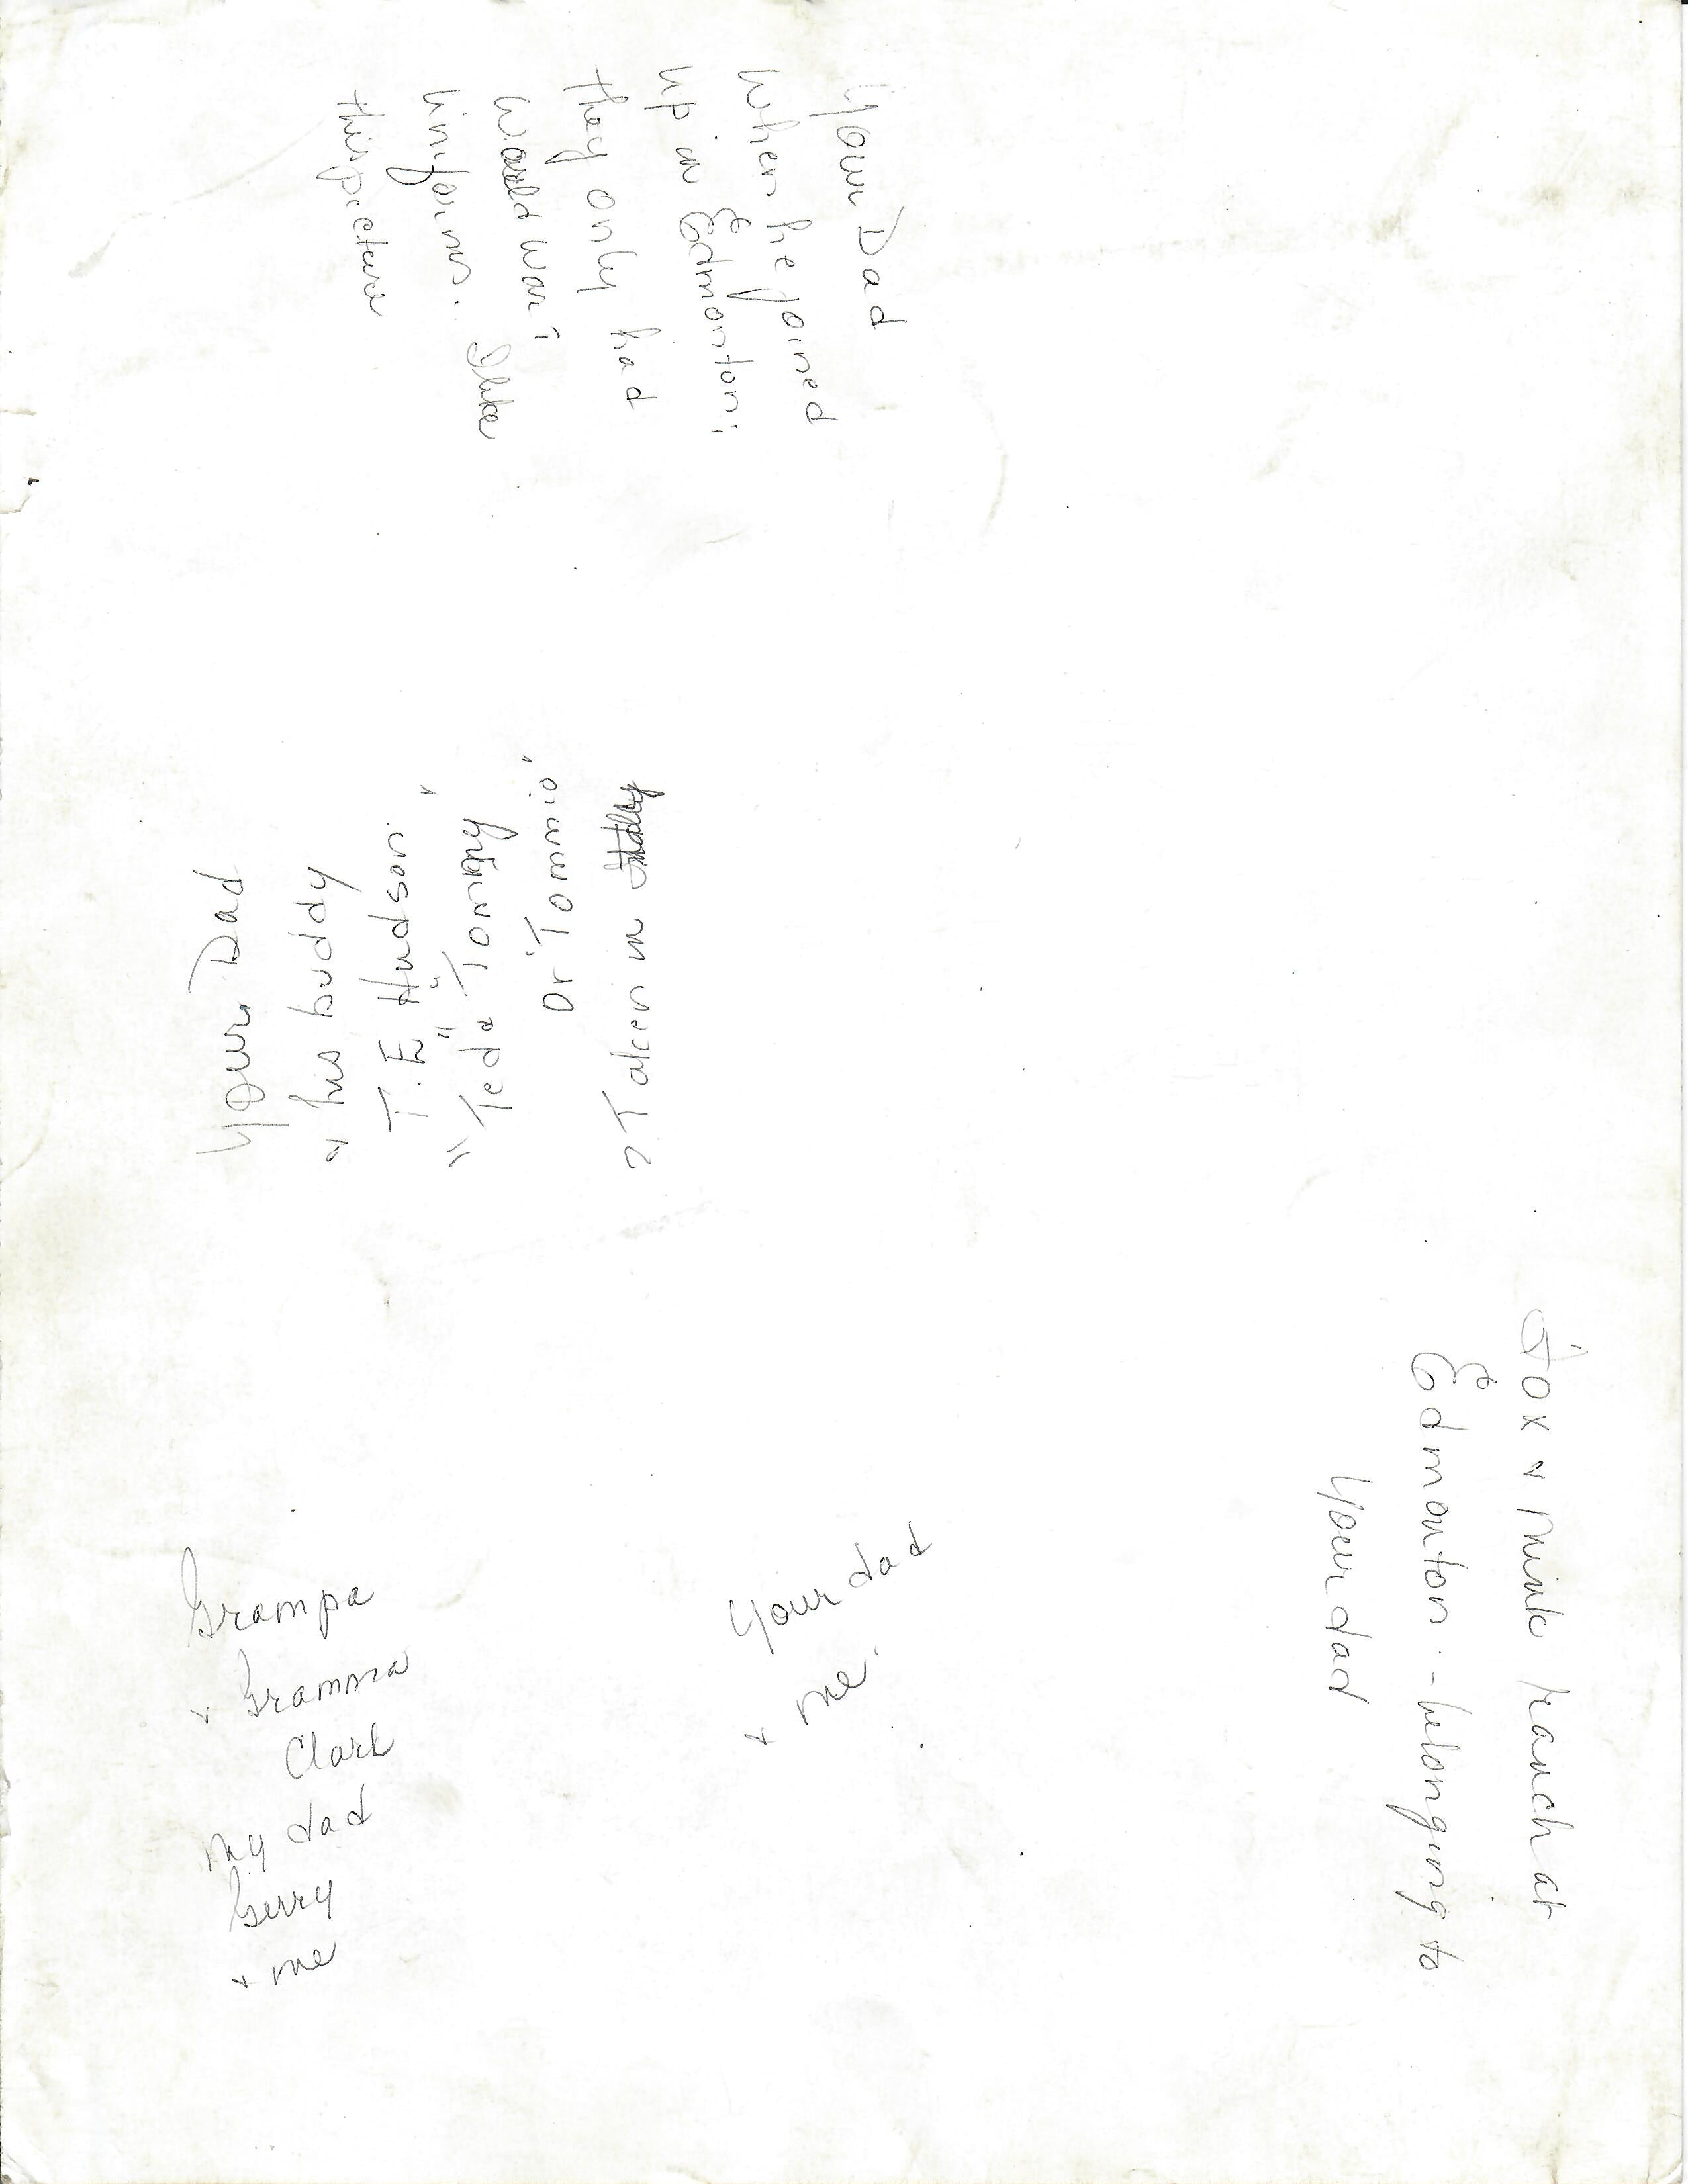 Your Dad
When he joined
up in Edmonton;
they only had
World War i
Uniforms. I like
this picture
Your Dad
& his buddy
T. E. Hudson.
"Ted" & "Tommy"
Or "Tommie"
? Taken in
Fox & Mink ranch at
Edmonton. - belonging to
Your dad
Your dad
+ me.
Grampa
+ Gramma
Clark
my dad
Gerry
+ me